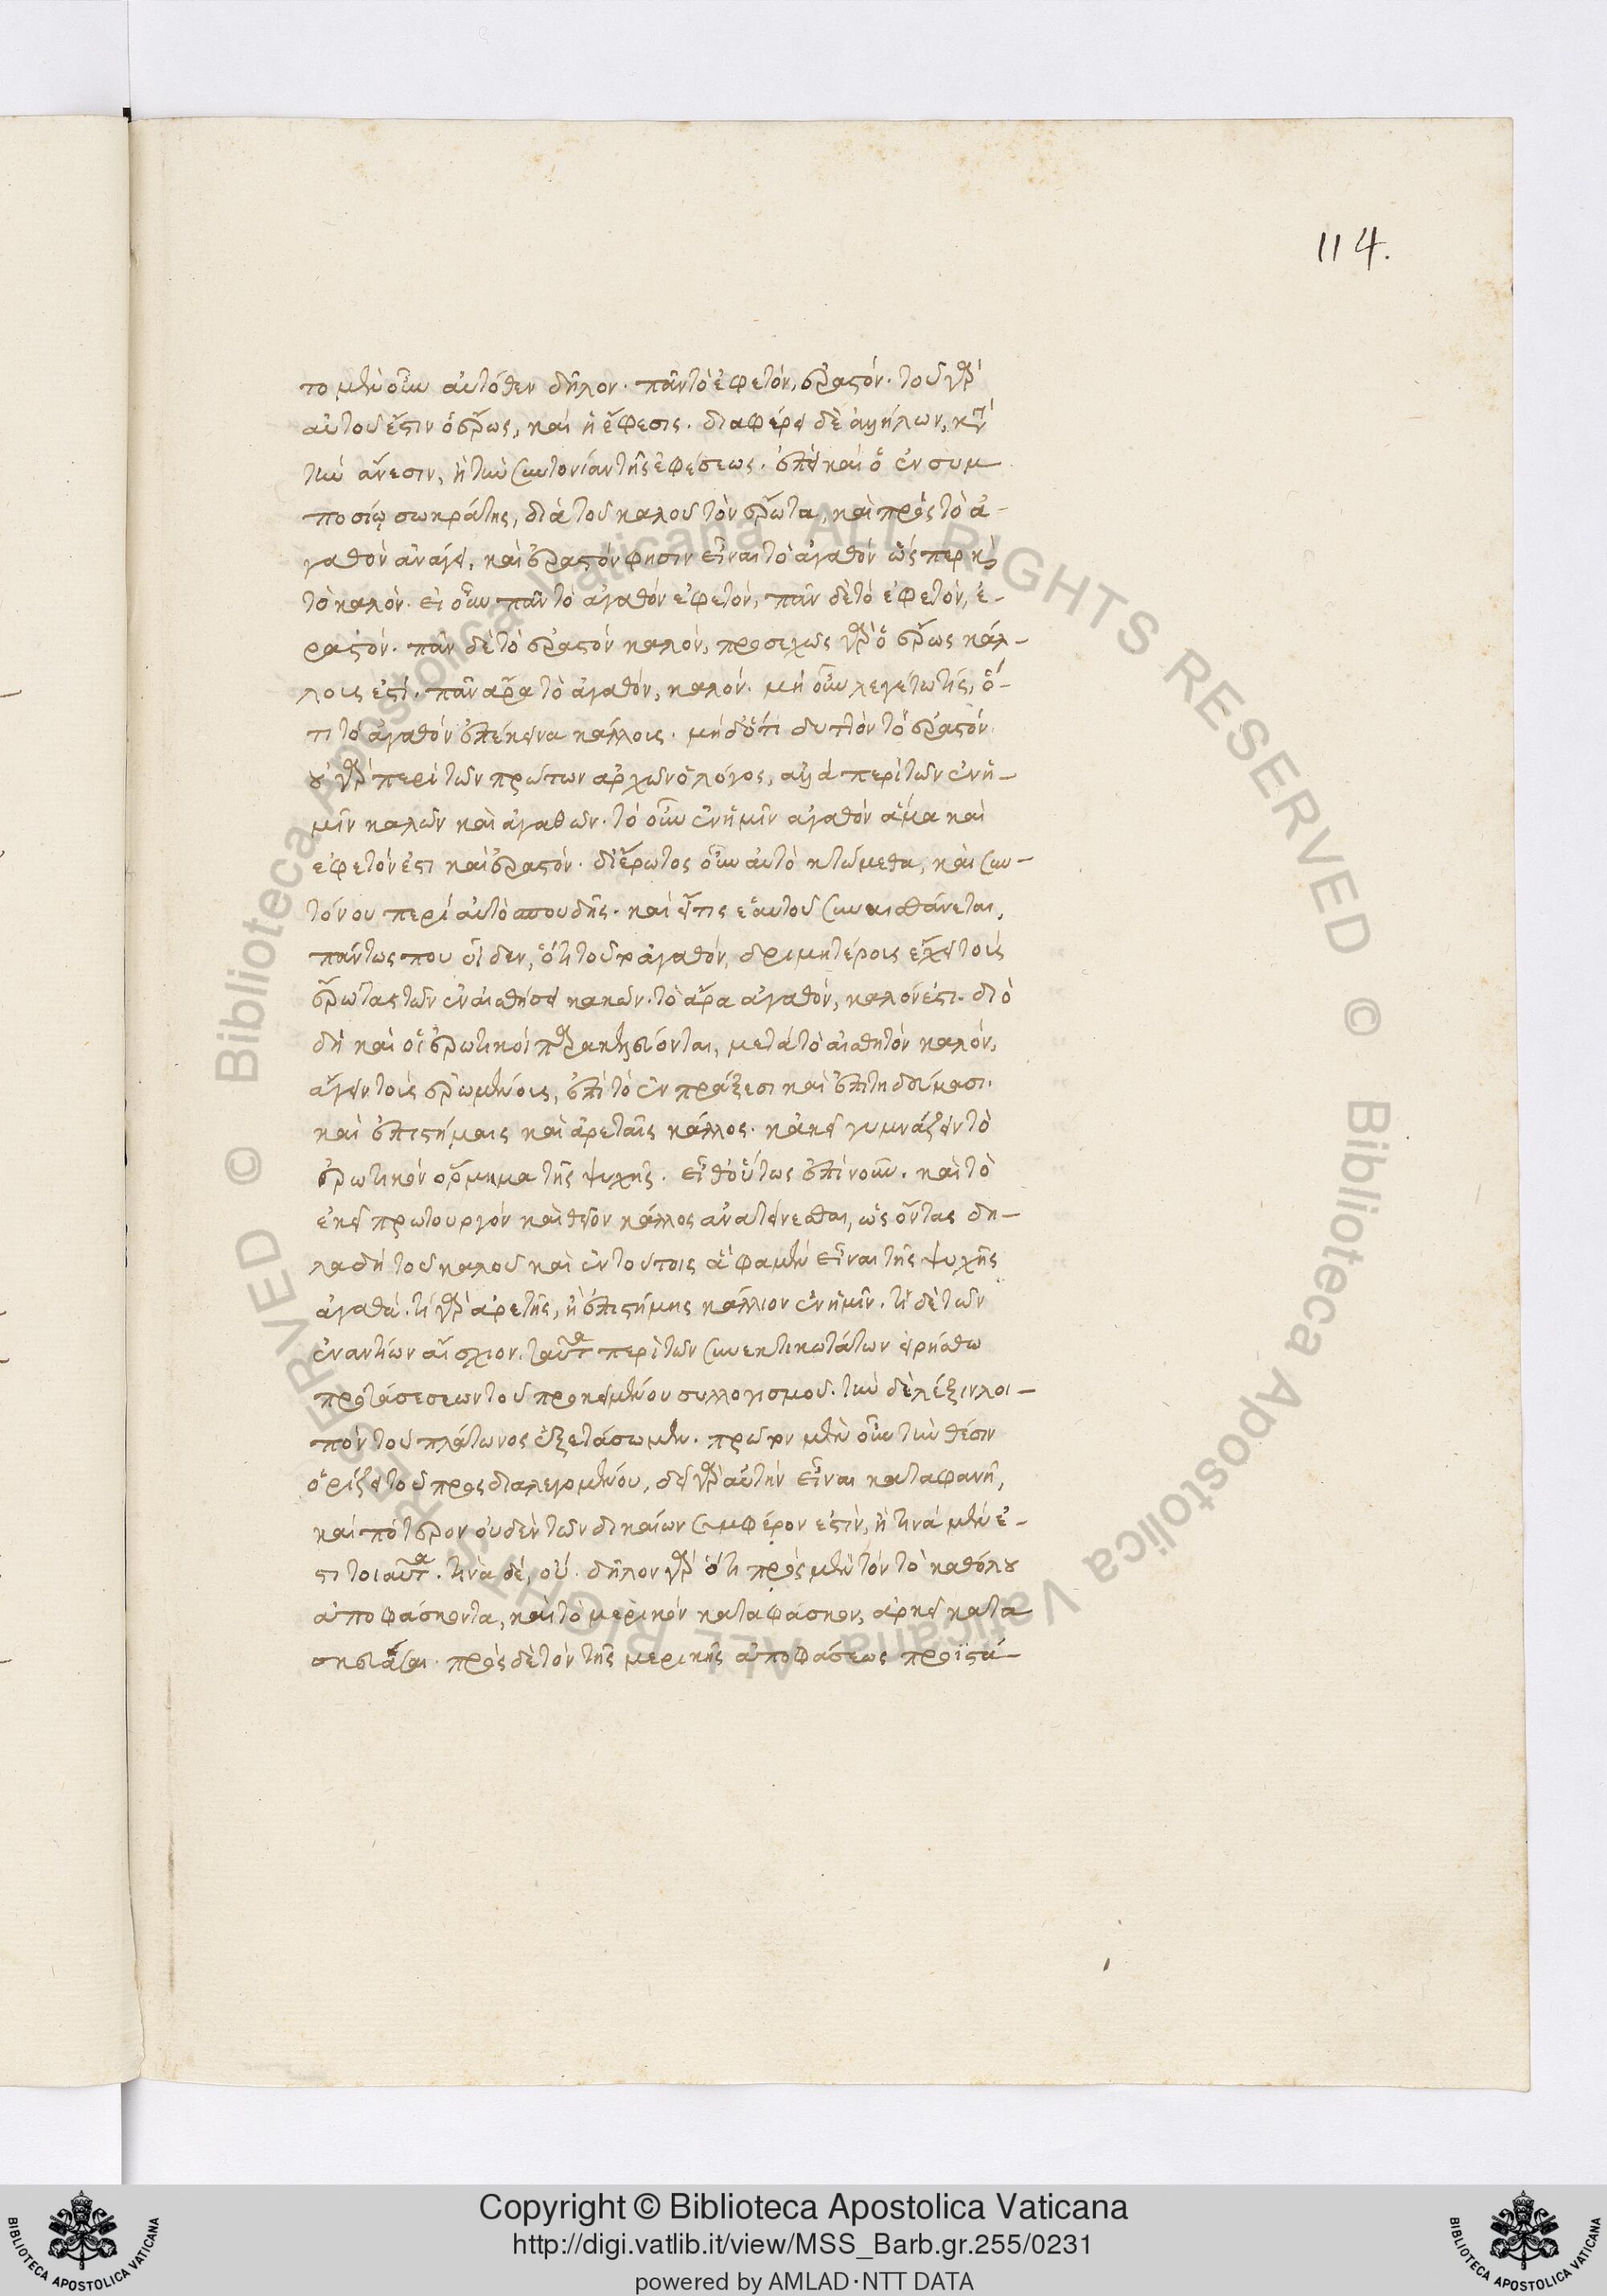 114.
το μὲν οὖν αὐτόθεν δῆλον. πᾶν τὸ ἐφετὸν, ἐραστόν. τοῦ γὰρ
αὐτοῦ ἔστιν ὁ ἔρως, καὶ ἡ ἔφεσις. διαφέρει δὲ ἀλλήλων, κατὰ
τὴν ἄνεσιν, ἢ τὴν συντονίαν τῆς ἐφέσεως. ἐπεὶ καὶ ὁ ἐν συμ
ποσίῳ σωκράτης, διὰ τοῦ καλοῦ τὸν ἔρωτα, καὶ πρὸς τὸ ἀ-
γαθὸν ἀνάγει, καὶ ἐραστόν φησιν εἶναι τὸ ἀγαθὸν ὥς περ καὶ
τὸ καλόν. εἰ οὖν πᾶν τὸ ἀγαθὸν ἐφετὸν, πᾶν δὲ τὸ ἐφετὸν, ἐ-
ραστόν. πᾶν δὲ τὸ ἐραστὸν καλὸν, προσεχῶς γὰρ ὁ ἔρως κάλ-
λους ἐστί. πᾶν ἄρα τὸ ἀγαθὸν, καλόν. μὴ οὖν λεγέτω τὶς, ὅ-
τι τὸ ἀγαθὸν ἐπέκεινα κάλλους. μηδ' ὅτι διττὸν τὸ ἐραστόν
οὐ γὰρ περὶ τῶν πρώτων ἀρχῶν ὁ λόγος, ἀλλὰ περὶ τῶν ἐν ἡ-
μῖν καλῶν καὶ ἀγαθῶν. τὸ οὖν ἐν ἡμῖν ἀγαθὸν ἅμα καὶ
ἐφετόν ἐστι καὶ ἐραστόν. δι' ἔρωτος οὖν αὐτὸ κτώμεθα, καὶ συν-
τόνου περὶ αὐτὸ σπουδῆς. καὶ εἴ τις ἑαυτοῦ συναισθάνεται,
πάντως που οἶδεν, ὅτι τοῦτο ἀγαθὸν, δριμυτέρους ἔχει τοὺς
ἔρωτας τῶν ἐν αἰσθήσει κακῶν. τὸ ἄρα ἀγαθὸν, καλόν ἐστι. διὸ
δὴ καὶ οἱ ἐρωτικοὶ παρακελεύονται, μετὰ τὸ αἰσθητὸν καλὸν,
ἄγειν τοὺς ἐρωμένους, ἐπὶ τὸ ἐν πράξεσι καὶ ἐπιτηδεύμασι.
καὶ ἐπιστήμαις καὶ ἀρεταῖς κάλλος. κἀκεῖ γυμνάζειν τὸ
ἐρωτικὸν ὅρμημα τῆς ψυχῆς. εἶθ' οὕτως ἐπὶ νοῦν. καὶ τὸ
ἐκεῖ πρωτουργὸν καὶ θεῖον κάλλος ἀνατείνεσθαι, ὡς ὄντας δη-
λαδὴ τοῦ καλοῦ καὶ ἐν τούτοις ἅ φαμεν εἶναι τῆς ψυχῆς
ἀγαθά. τί γὰρ ἀρετῆς, ἢ ἐπιστήμης κάλλιον ἐν ἡμῖν. τί δὲ τῶν
ἐναντίων αἴσχιον. ταῦτα περὶ τῶν συνεκτικωτάτων εἰρήσθω
προτάσεων τοῦ προκειμένου συλλογισμοῦ. τὴν δὲ λέξιν λοι-
πὸν τοῦ πλάτωνος ἐξετάσωμεν. πρῶτον μὲν οὖν τὴν θέσιν
ὁρίζει τοῦ προςδιαλεγομένου, δεῖ γὰρ αὐτὴν εἶναι καταφανῆ,
καὶ πότερον οὐδὲν τῶν δικαίων συμφέρον ἐστὶν, ἢ τινὰ μὲν ἐ-
στι τοιαῦτα. τινὰ δὲ, οὔ. δῆλον γὰρ ὅτι πρὸς μὲν τὸν τὸ καθόλου
ἀποφάσκοντα, καὶ τὸ μερικὸν καταφάσκον, ἀρκεῖ κατα
σκευάσαι. πρὸς δὲ τὸν τῆς μερικῆς ἀποφάσεως προϊστά-
Copyright © Biblioteca Apostolica Vaticana
http://digi.vatlib.it/view/MSS_Barb.gr.255/0231
powered by AMLAD·NTT DATA